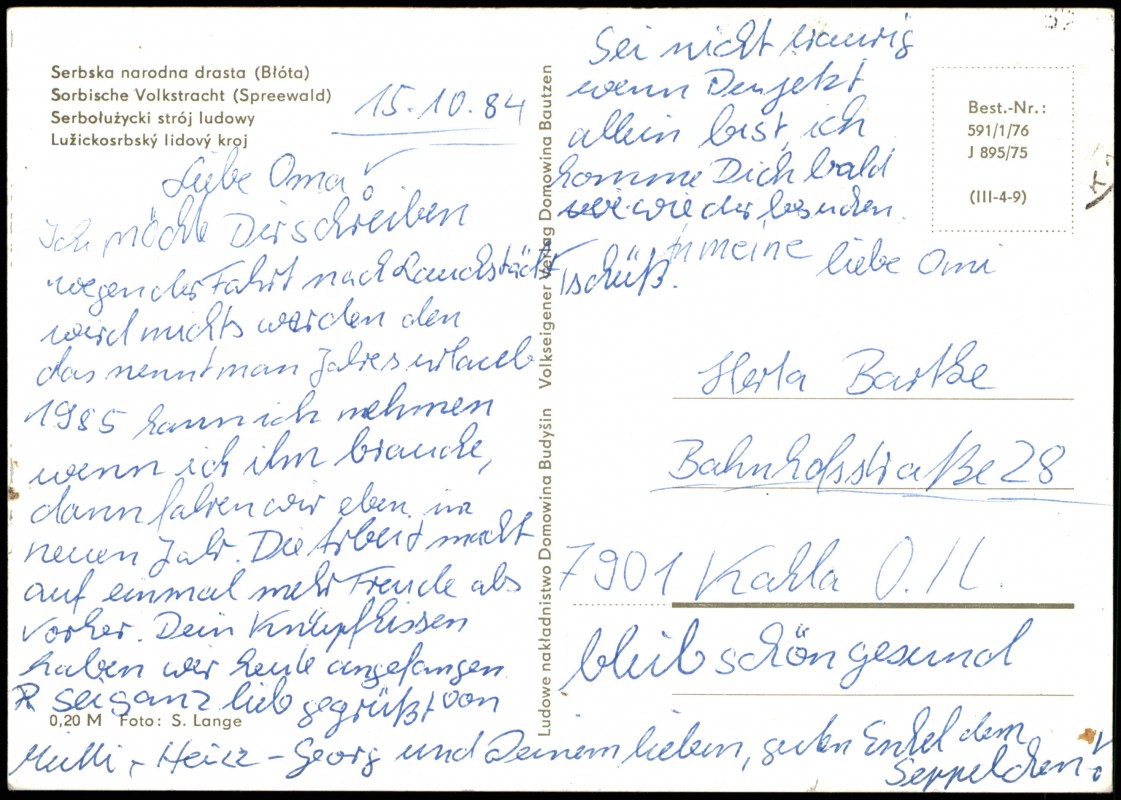 Serbska narodna drasta (Błóta)
Sorbische Volkstracht (Spreewald)
Serbołużycki strój ludowy
Lužickosrbský lidový kroj
15.10.84
Liebe Oma!
Ich möchte Dir schreiben
wegen der Fahrt nach Lauchstädt
wird nichts werden den
das nennt man Jahresurlaub
1985 kann ich nehmen
wenn ich ihn brauche,
dann fahren wir eben im
neuen Jahr. Die Arbeit macht
auf einmal mehr Freude als
vorher. Dein Knüpfkissen
haben wir heute angefangen
sei ganz lieb gegrüßt von
0,20 M Foto: S. Lange
Mutti, Heinz-Georg und Deinem lieben, guten Enkel dem
Seppelchen!
Ludowe nakładnistwo Domowina Budyšin Volkseigener Verlag Domowina Bautzen
Sei nicht traurig
wenn Du jetzt
allein bist, ich
komme Dich bald
wieder besuchen.
Tschüß. meine liebe Omi
Best.-Nr.:
591/1/76
J 895/75
(III-4-9)
Herta Bartke
Bahnhofsstraße 28
7901 Kahla O./L.
bleib schön gesund